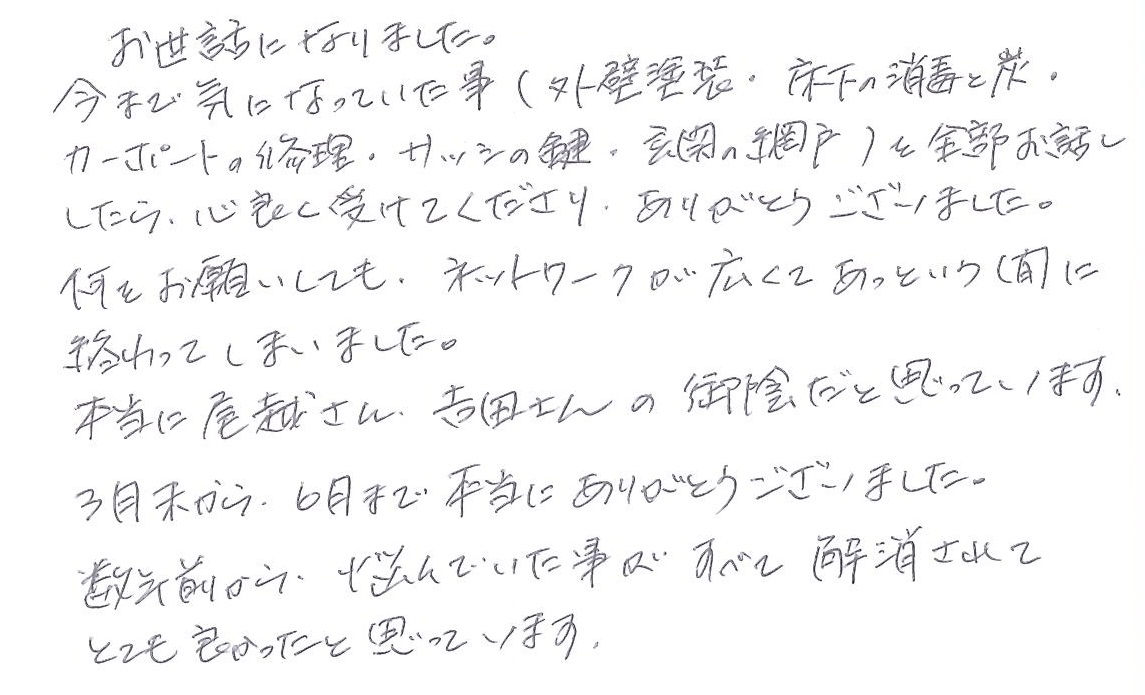 お世話になりました。
今まで気になっていた事(外壁塗装・床下の消毒と炭・
カーポートの修理・サッシの鍵・玄関の網戸)を全部お話し
したら、心良く受けてくださり、ありがとうございました。
何をお願いしても、ネットワークが広くてあっという間に
終わってしまいました。
本当に尾越さん、吉田さんの御陰だと思っています。
3月末から、6月まで本当にありがとうございました。
数年前から、悩んでいた事がすべて解消されて
とても良かったと思っています。